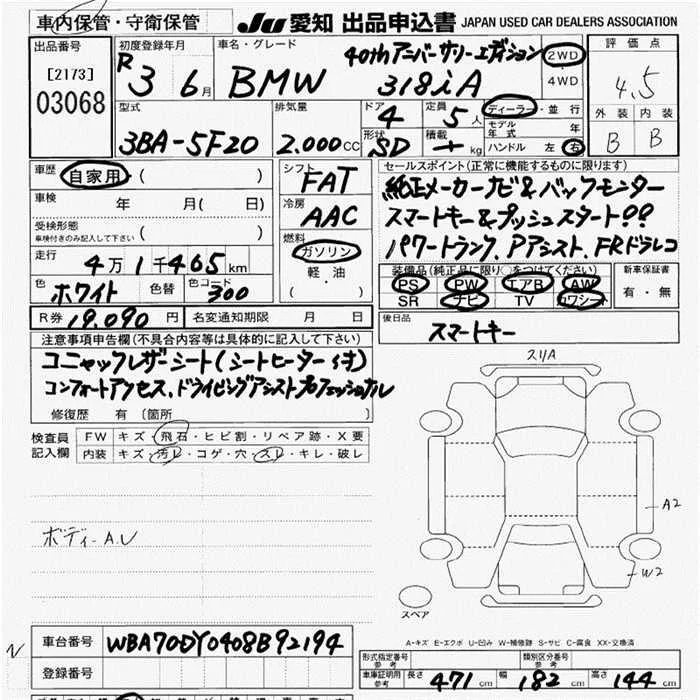 車内保管・守衛保管
JU 愛知 出品申込書 JAPAN USED CAR DEALERS ASSOCIATION
出品番号
[2173]
03068
初度登録年月
R 3 6月
車名・グレード
40thアニバーサリーエディション
BMW 318iA
2WD
4WD
評価点
4.5
外装 内装
B B
型式
3BA-5F20
排気量
2.000cc
ドア
4
定員
5人
形状
SD
積載
kg
ディーラー・並行
モデル年式 年
ハンドル 左 右
車歴
自家用 ( )
車検 年 月( 日)
受検形態
車検付きのみ記入して下さい ( )
走行
4万1千465km
色
ホワイト
色替
色コード
300
R券 19.090円
名変通知期限 月 日
シフト
FAT
冷房
AAC
燃料
ガソリン
軽・油
( )
セールスポイント(正常に機能するものに限ります)
純正メーカーナビ&バックモニター
スマートキー&プッシュスタート!!
パワートランク、Pアシスト、FRドラレコ
装備品(純正品に限り○をつけてください)
PS PW エアB AW
SR ナビ TV カワシート
新車保証書
有・無
後日品
スマートキー
注意事項申告欄(不具合内容等は具体的に記入して下さい)
コニャックレザーシート(シートヒーター付)
コンフォートアクセス、ドライビングアシストプロフェッショナル
修復歴 有 〔箇所 〕
検査員記入欄
FW キズ・飛石・ヒビ割・リペア跡・X要
内装 キズ・汚レ・コゲ・穴・スレ・キレ・破レ
ボディーA.U
スリA
A2
W2
スペア
A-キズ E-エクボ U-凹み W-補修跡 S-サビ C-腐食 XX-交換済
車台番号 WBA70DY0408B92194
登録番号
形式指定番号
参考
類別区分番号
参考
車庫証明用
参考
長さ 471cm 幅 182cm 高さ 144cm